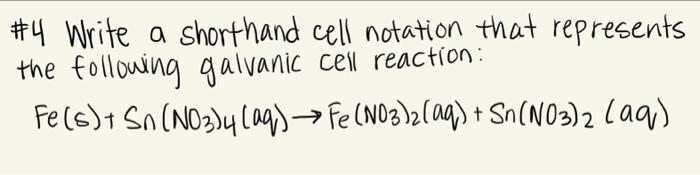 #4 Write a shorthand cell notation that represents
the following galvanic cell reaction:
Fe(s)+ Sn(NO3)4(aq)→Fe(NO3)2(aq) + Sn(NO3)2 (aq)